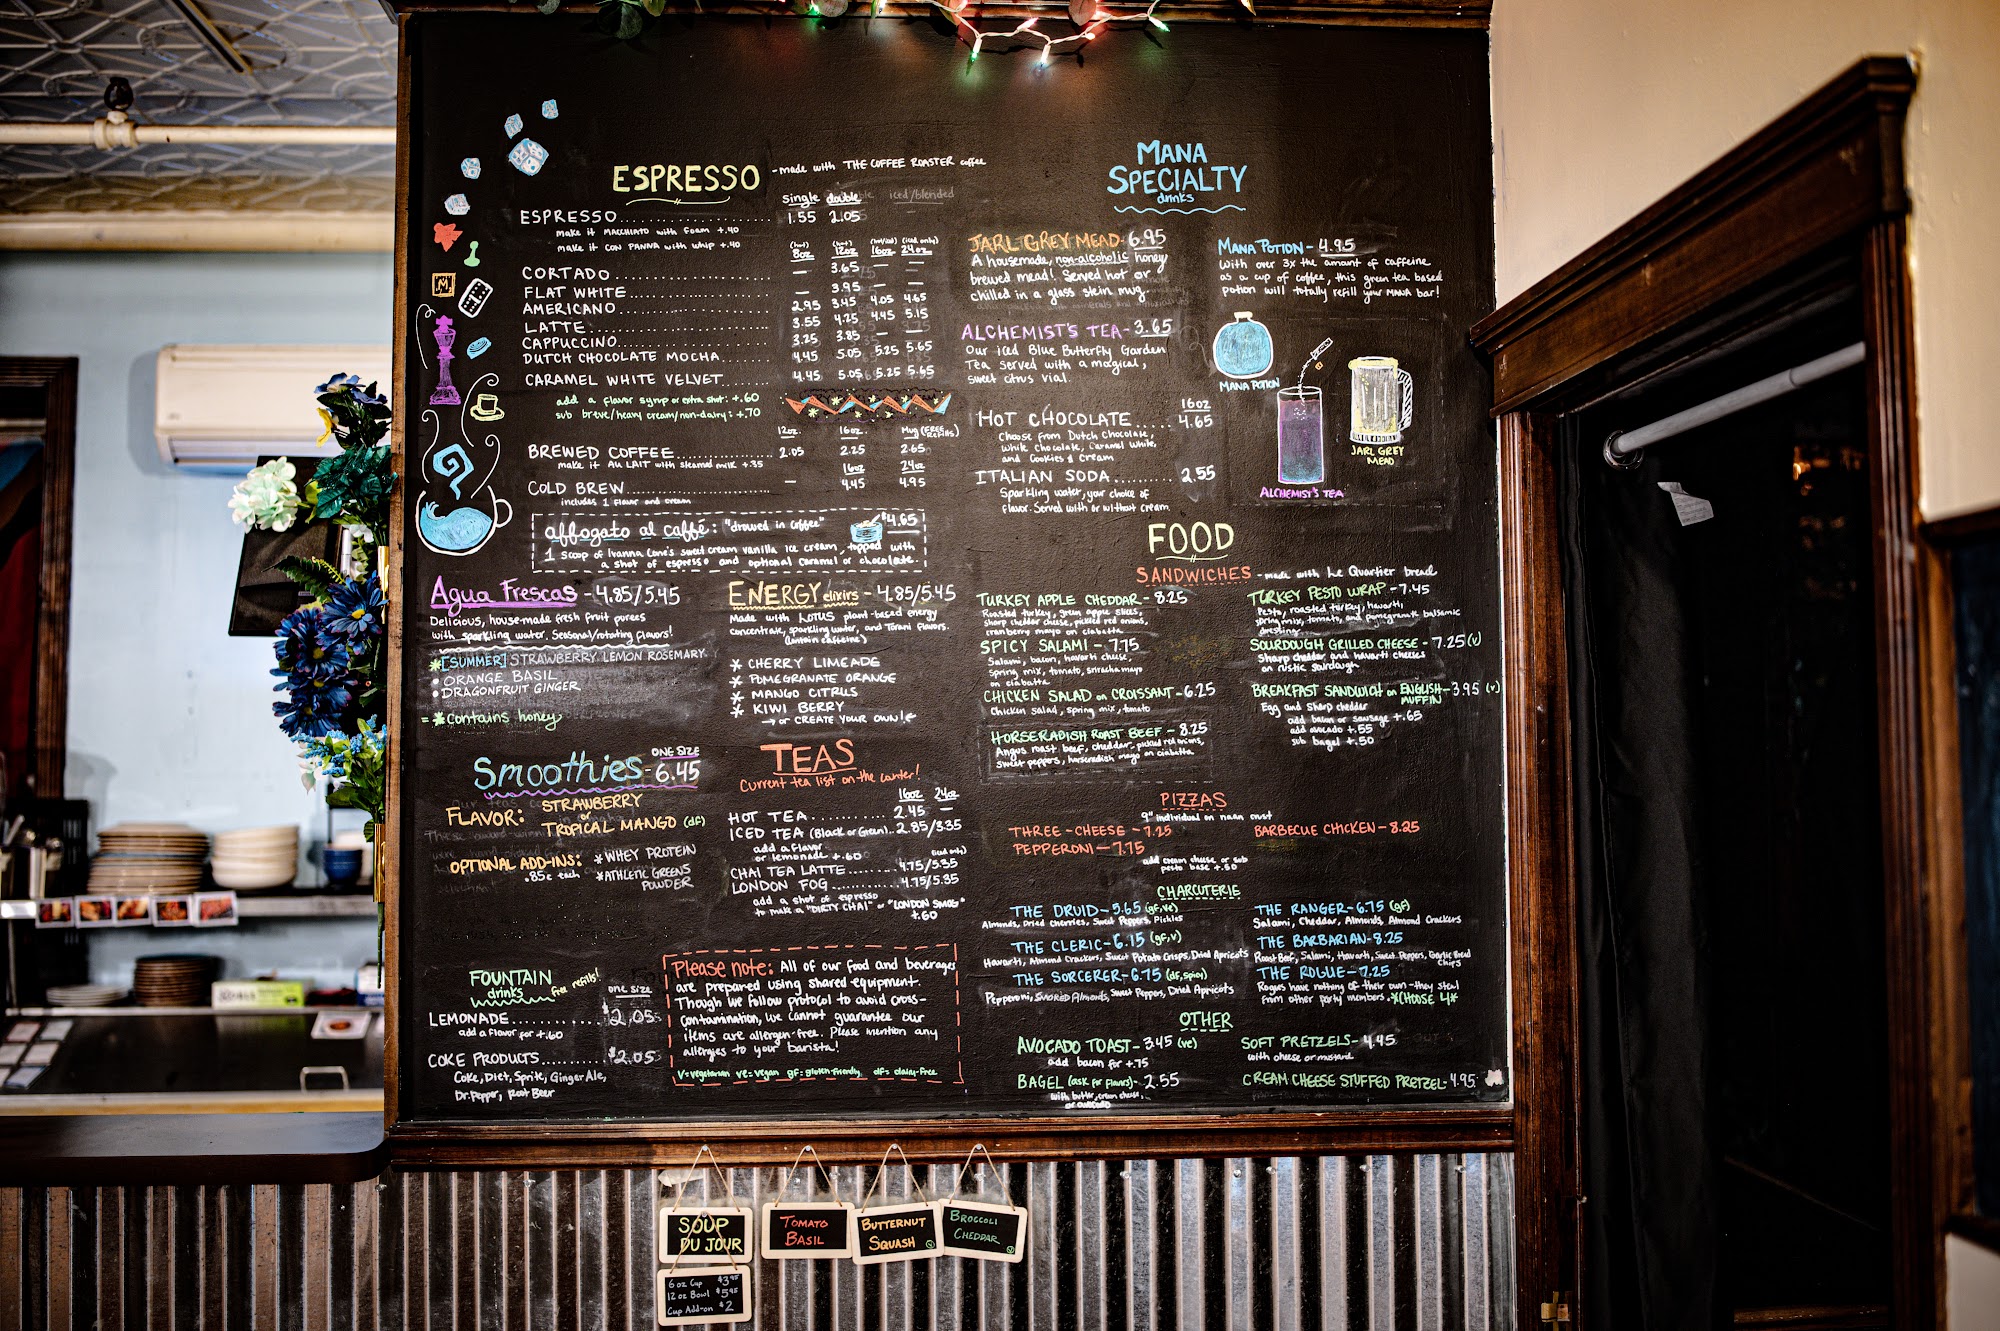 ESPRESSO
-made with THE COFFEE ROASTER coffee
single double iced/blended
ESPRESSO 1.55 2.05
make it MACCHIATO with foam +.40
make it CON PANNA with whip +.40
(hot) (hot) (hot/iced) (iced only)
8oz 12oz 16oz 24oz
CORTADO — 3.65 — —
FLAT WHITE — 3.95 — —
AMERICANO 2.95 3.45 4.05 4.65
LATTE 3.55 4.25 4.45 5.15
CAPPUCCINO 3.25 3.85 — —
DUTCH CHOCOLATE MOCHA 4.45 5.05 5.25 5.65
CARAMEL WHITE VELVET 4.45 5.05 5.25 5.65
add a flavor syrup or extra shot: +.60
sub breve/heavy cream/non-dairy: +.70
12oz. 16oz. Mug (FREE Refills)
BREWED COFFEE 2.05 2.25 2.65
make it AU LAIT with steamed milk +.35
16oz 24oz
COLD BREW — 4.45 4.95
includes 1 flavor and cream
affogato al caffé: "drowned in coffee" $4.65
1 scoop of Ivanna Cone's sweet cream vanilla ice cream, topped with
a shot of espresso and optional caramel or chocolate.
Agua Frescas - 4.85/5.45
Delicious, house-made fresh fruit purees
with sparkling water. Seasonal/rotating flavors!
*[SUMMER] STRAWBERRY LEMON ROSEMARY
• ORANGE BASIL
• DRAGONFRUIT GINGER
= *Contains honey
ENERGY elixirs - 4.85/5.45
Made with LOTUS plant-based energy
concentrate, sparkling water, and Torani flavors.
(contain caffeine)
* CHERRY LIMEADE
* POMEGRANATE ORANGE
* MANGO CITRUS
* KIWI BERRY
→ or CREATE YOUR OWN! ←
Smoothies - ONE SIZE 6.45
FLAVOR: STRAWBERRY
or
TROPICAL MANGO (df)
OPTIONAL ADD-INS: * WHEY PROTEIN
.85¢ each * ATHLETIC GREENS
POWDER
TEAS
Current tea list on the counter!
16oz 24oz
HOT TEA 2.45 —
ICED TEA (Black or Green) 2.85/3.35
add a flavor
or lemonade +.60
(iced only)
CHAI TEA LATTE 4.75/5.35
LONDON FOG 4.75/5.35
add a shot of espresso
to make a "DIRTY CHAI" or "LONDON SMOG"
+.60
FOUNTAIN
drinks free refills!
one size
LEMONADE $2.05
add a flavor for +.60
COKE PRODUCTS $2.05
Coke, Diet, Sprite, Ginger Ale,
Dr. Pepper, Root Beer
Please note: All of our food and beverages
are prepared using shared equipment.
Though we follow protocol to avoid cross-
contamination, we cannot guarantee our
items are allergen-free. Please mention any
allergies to your barista!
V=vegetarian ve=vegan gf=gluten-friendly df=dairy-free
MANA
SPECIALTY
drinks
JARL GREY MEAD- 6.95
A housemade, non-alcoholic honey
brewed mead! Served hot or
chilled in a glass stein mug.
MANA POTION - 4.95
With over 3x the amount of caffeine
as a cup of coffee, this green tea based
potion will totally refill your MANA bar!
ALCHEMIST'S TEA- 3.65
Our iced Blue Butterfly Garden
Tea served with a magical,
sweet citrus vial.
16oz
HOT CHOCOLATE 4.65
Choose from Dutch Chocolate,
White Chocolate, Caramel White,
and Cookies & Cream
ITALIAN SODA 2.55
Sparkling water, your choice of
flavor. Served with or without cream.
MANA POTION
ALCHEMIST'S TEA
JARL GREY
MEAD
FOOD
SANDWICHES - made with Le Quartier bread
TURKEY APPLE CHEDDAR - 8.25
Roasted turkey, green apple slices,
sharp cheddar cheese, pickled red onions,
cranberry mayo on ciabatta
SPICY SALAMI - 7.75
Salami, bacon, havarti cheese,
spring mix, tomato, sriracha mayo
on ciabatta
CHICKEN SALAD on CROISSANT - 6.25
Chicken salad, spring mix, tomato
HORSERADISH ROAST BEEF - 8.25
Angus roast beef, cheddar, pickled red onions,
sweet peppers, horseradish mayo on ciabatta
TURKEY PESTO WRAP - 7.45
Pesto, roasted turkey, havarti,
spring mix, tomato, and pomegranate balsamic
dressing
SOURDOUGH GRILLED CHEESE - 7.25 (v)
Sharp cheddar and havarti cheeses
on rustic sourdough
BREAKFAST SANDWICH on ENGLISH MUFFIN - 3.95 (v)
Egg and sharp cheddar
add bacon or sausage +.65
add avocado +.55
sub bagel +.50
PIZZAS
9" individual on naan crust
THREE-CHEESE - 7.25
PEPPERONI - 7.75
BARBECUE CHICKEN - 8.25
add cream cheese or sub
pesto base +.50
CHARCUTERIE
THE DRUID - 5.65 (gf,ve)
Almonds, Dried Cherries, Sweet Peppers, Pickles
THE CLERIC - 6.15 (gf,v)
Havarti, Almond Crackers, Sweet Potato Crisps, Dried Apricots
THE SORCERER - 6.75 (df, spicy)
Pepperoni, Smoked Almonds, Sweet Peppers, Dried Apricots
THE RANGER - 6.75 (gf)
Salami, Cheddar, Almonds, Almond Crackers
THE BARBARIAN - 8.25
Roast Beef, Salami, Havarti, Sweet Peppers, Garlic Bread Chips
THE ROGUE - 7.25
Rogues have nothing of their own - they steal
from other party members. *CHOOSE 4*
OTHER
AVOCADO TOAST - 3.45 (ve)
add bacon for +.75
BAGEL (ask for flavors) - 2.55
with butter, cream cheese,
or avocado
SOFT PRETZELS - 4.45
with cheese or mustard
CREAM CHEESE STUFFED PRETZEL - 4.95
SOUP
DU JOUR
TOMATO
BASIL
BUTTERNUT
SQUASH
BROCCOLI
CHEDDAR
6 oz Cup $3.95
12 oz Bowl $5.95
Cup Add-on $2